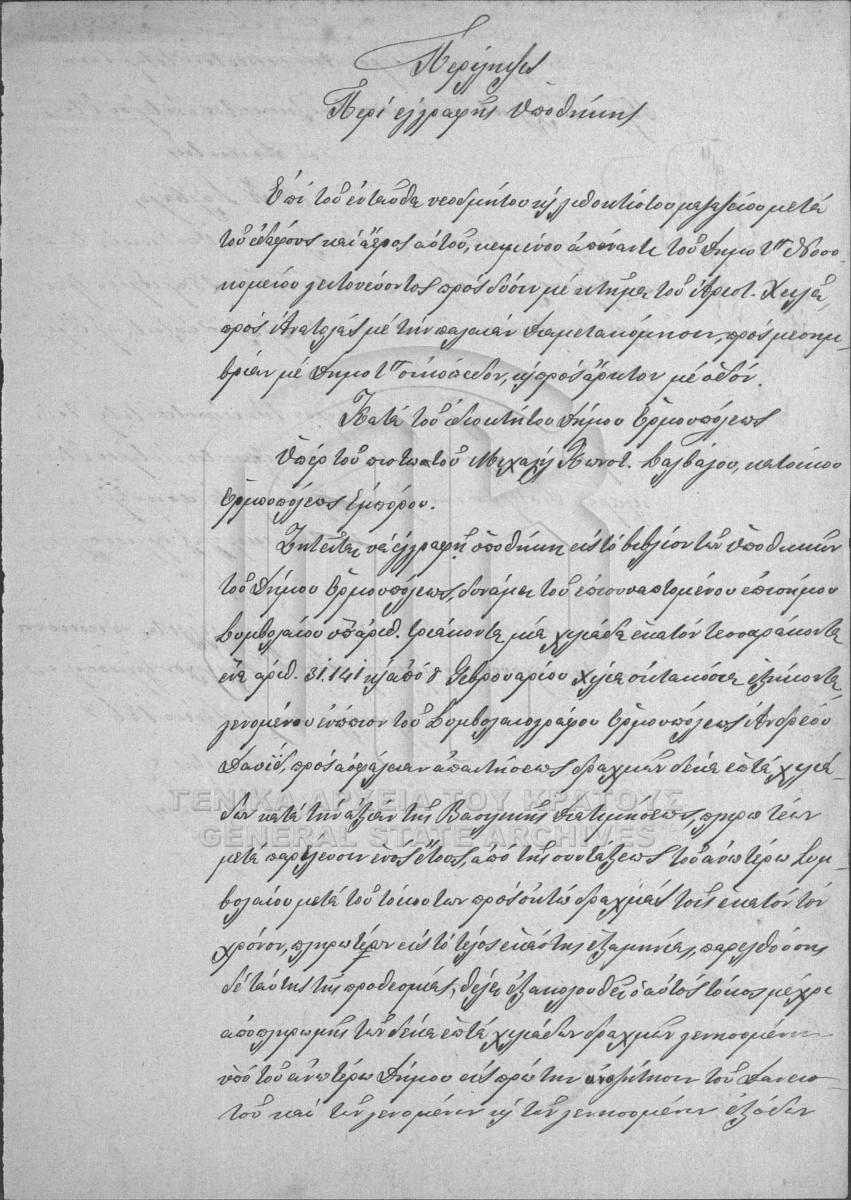 Περίληψις
Περί εγγραφής υποθήκης
Επί του ενταύθα νεοδμήτου κ λιθοκτίστου μαγαζείου μετά
του εδάφους και αέρος αυτού, κειμένου απέναντι του Δημοτ. Νοσο-
κομείου γειτονεύοντος προς δύσιν με κτήμα του Αριστ.
προς Ανατολάς με την παλαιάν Διαμετακόμησιν, προς μεσημ-
βρίαν με Δημοτ. οικόπεδον, κ προς άρκτον με οδόν.
Κατά του ιδιοκτήτου Δήμου Ερμουπόλεως
Υπέρ του πιστωτού Μιχαήλ Κωνστ. Σαλβάγου, κατοίκου
Ερμουπόλεως Εμπόρου.
Ζητείται να εγγραφή υποθήκη εις το βιβλίον των υποθηκών
του Δήμου Ερμουπόλεως, δυνάμει του επισυναπτομένου επισήμου
Συμβολαίου υπ' αριθ. τριάκοντα μία χιλιάδα εκατόν τεσσαράκοντα
ένα αριθ. 31.141 κ από 8 Φεβρουαρίου χίλια οκτακόσια εξήκοντα
γενομένου ενώπιον του Συμβολαιογράφου Ερμουπόλεως Ανδρέου
Δαυίδ, προς ασφάλειαν απαιτήσεως δραχμών δέκα επτά χιλιά-
δων κατά την αξίαν της Βασιλικής Διατιμήσεως, πληρωτέων
μετά παρέλευσιν ενός έτους, από της συντάξεως του ανωτέρω Συμ-
βολαίου μετά του τόκου των προς οκτώ δραχμάς τοις εκατόν τον
χρόνον, πληρωτέων εις το τέλος εκάστης εξαμηνίας, παρελθούσης
δε ταύτης της προθεσμίας, θέλει εξακολουθεί ο αυτός τόκος μέχρι
αποπληρωμής των δέκα επτά χιλιάδων δραχμών γενησομένην
υπό του ανωτέρω Δήμου εις πρώτην αναζήτησιν του Δανεισ-
του και των γενομένων κ των γενησομένων εξόδων
ΓΕΝΙΚΑ ΑΡΧΕΙΑ ΤΟΥ ΚΡΑΤΟΥΣ
GENERAL STATE ARCHIVES